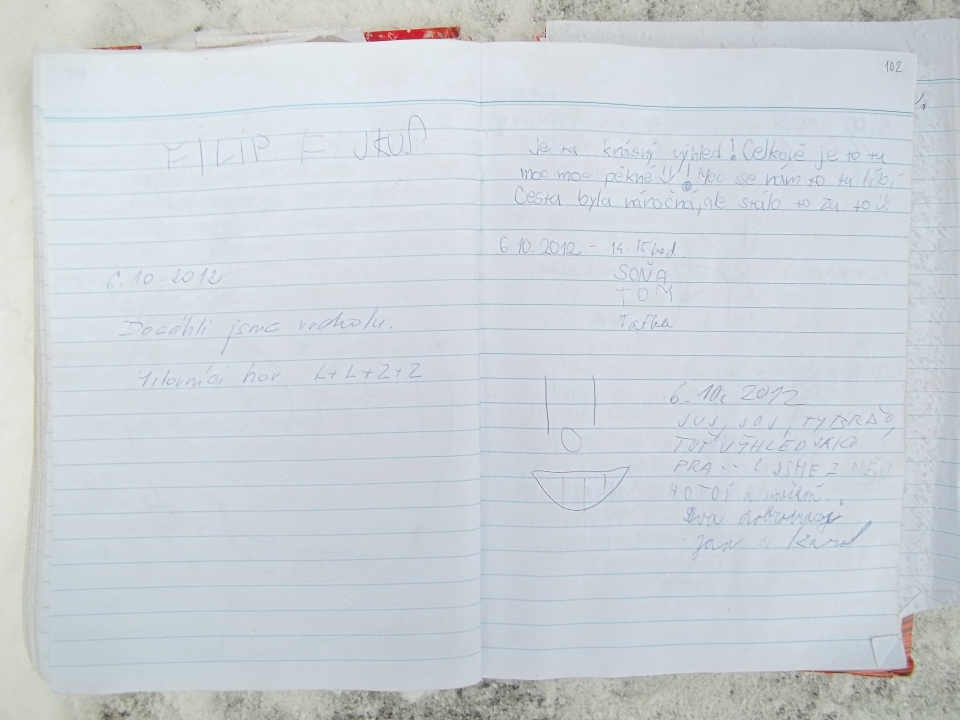 FILIP
6.10.2012
Dosáhli jsme vrcholu.
Milovníci hor L+L+Z+Z
102
Je tu krásný výhled! Celkově je to tu
moc moc pěkné! Moc se nám to tu líbí
Cesta byla náročná, ale stálo to za to
6.10.2012 - 14.15 hod.
SOŇA
TOM
Taťka
6.10.2012
JUJ, JOJ, TY BRĎO,
TOŤ VÝHLED JAKO
PRA... ! JSME Z NĚJ
Dva dobrodruzi
Jan a Karel